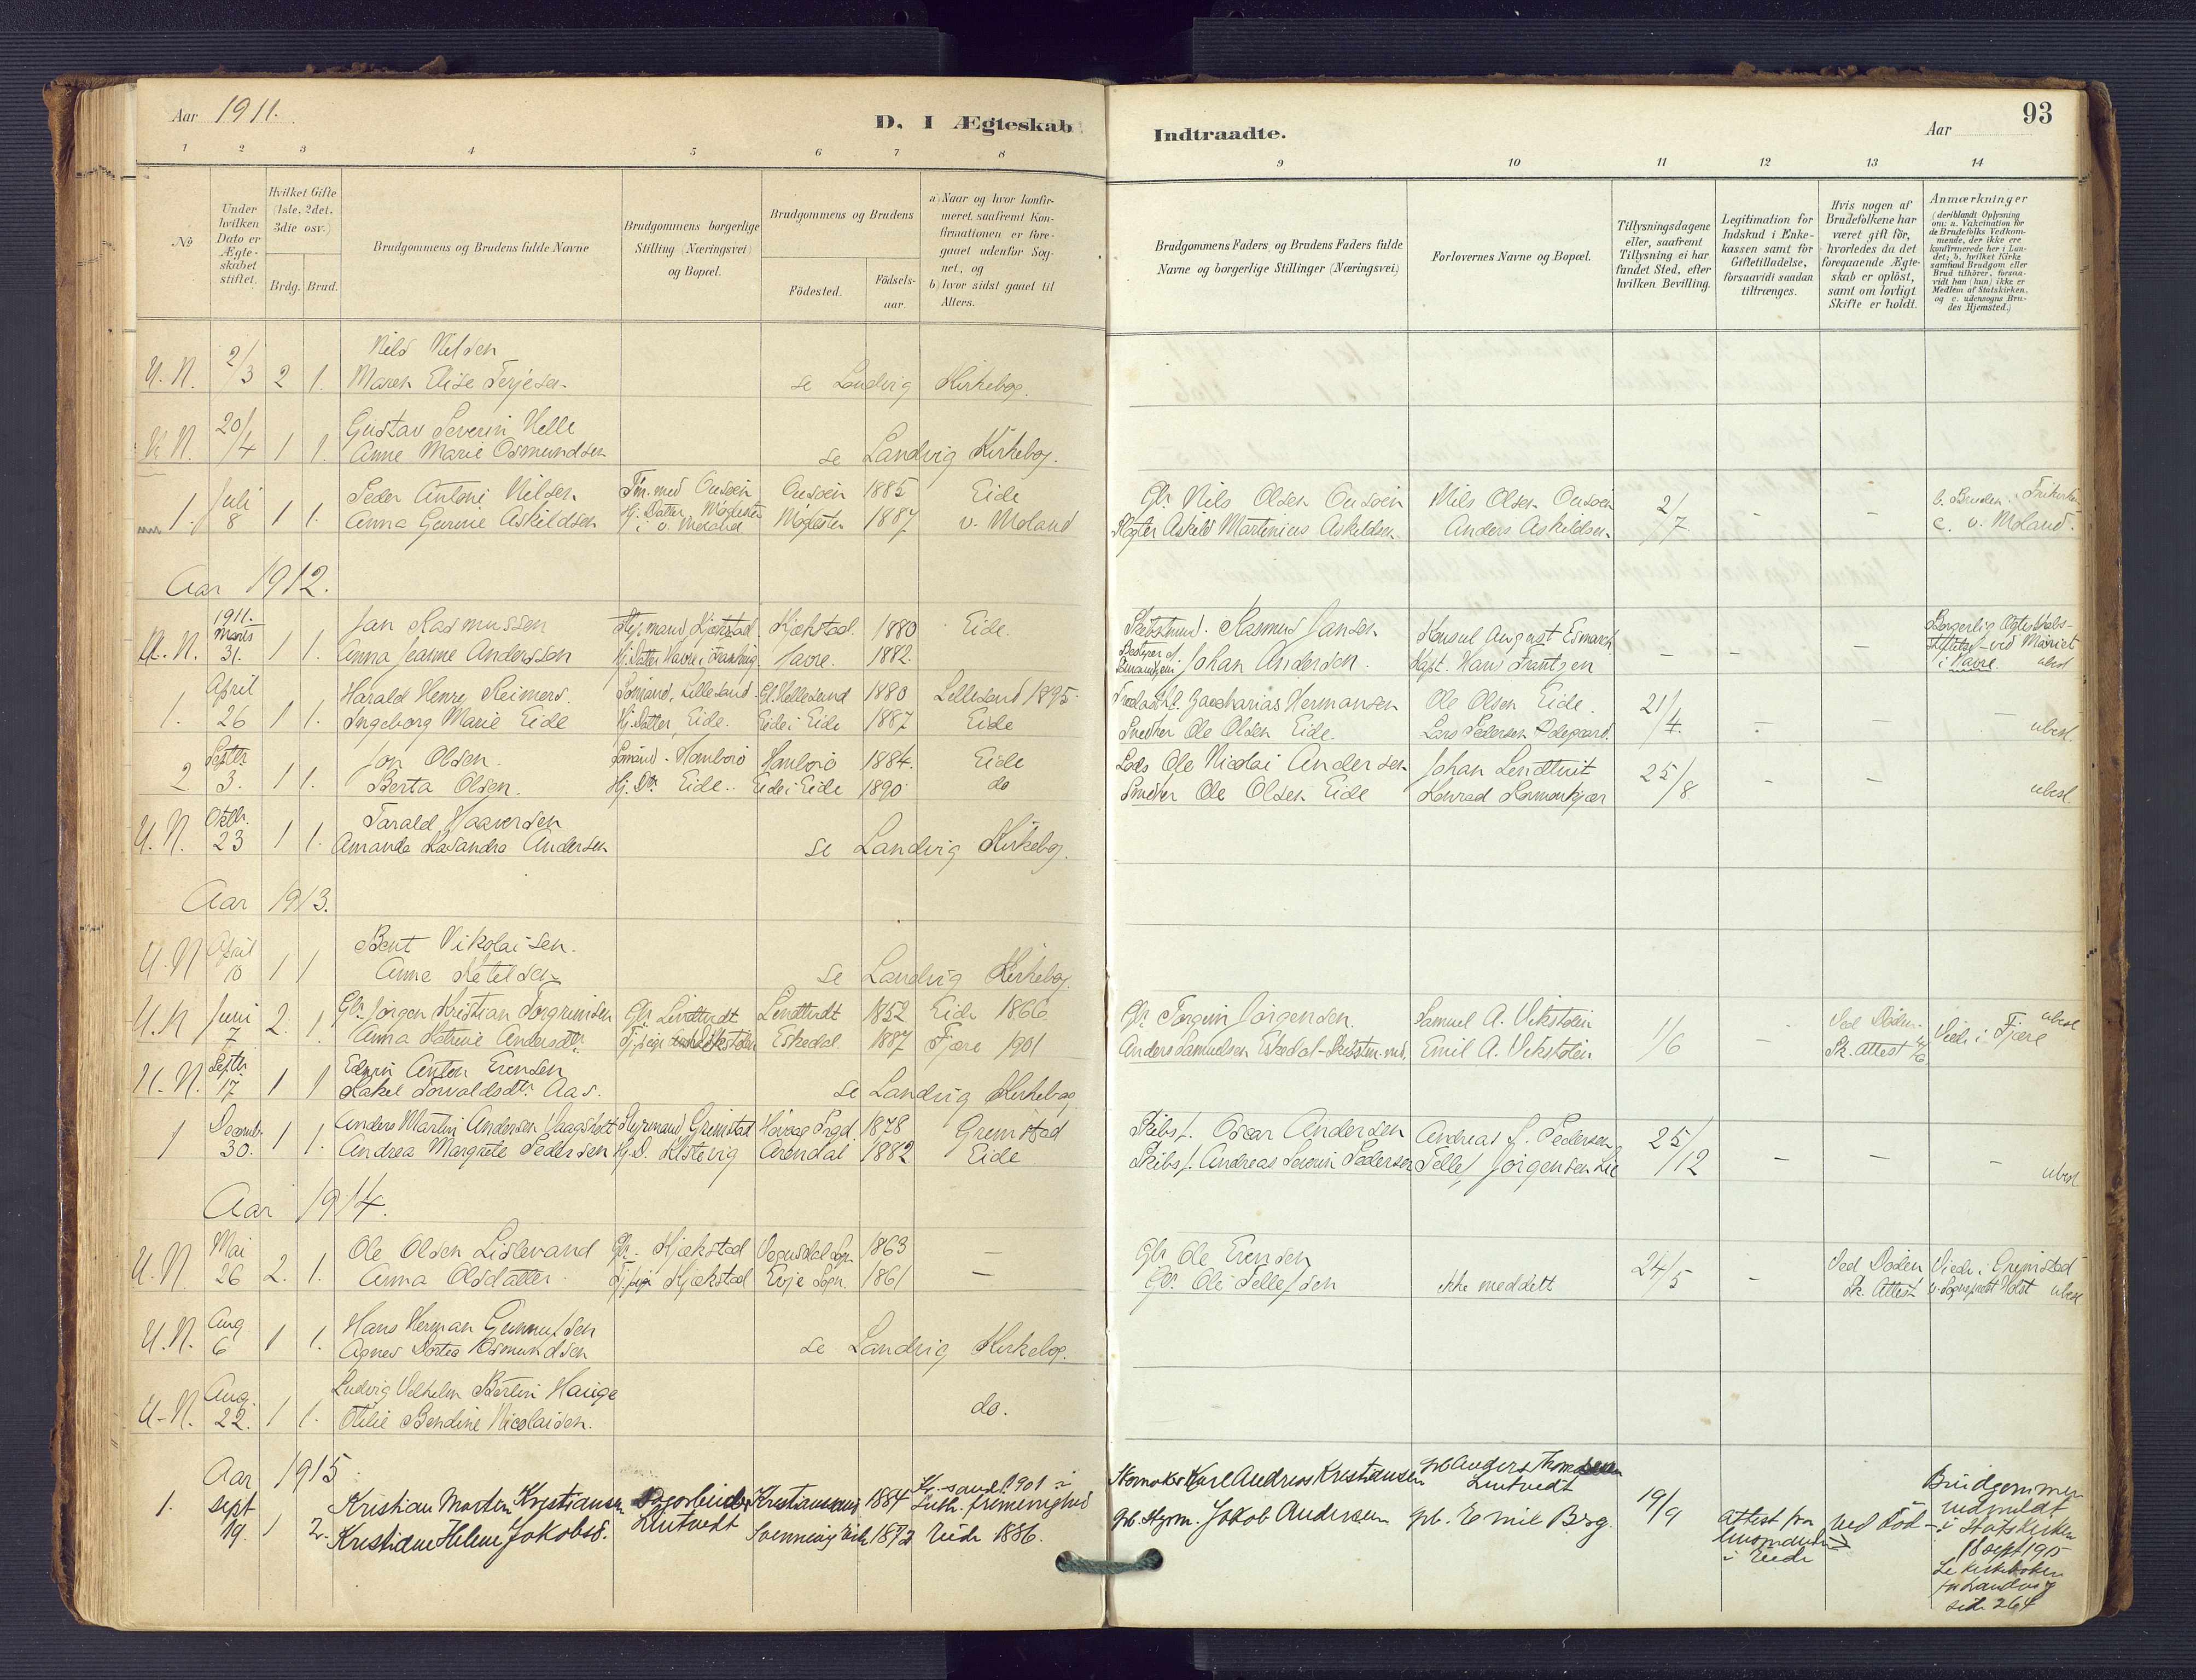 Aar 1911.
D. I Ægteskab
Indtraadte.
Aar
93
1 2 3 4 5 6 7 8 9 10 11 12 13 14
No
Under hvilken Dato er Ægteskabet stiftet.
Hvilket Gifte (1ste, 2det, 3die osv.)
Brdg. Brud.
Brudgommens og Brudens fulde Navne
Brudgommens borgerlige Stilling (Næringsvei) og Bopæl.
Brudgommens og Brudens
Fødested.
Fødselsaar.
a) Naar og hvor konfirmeret, saafremt Konfirmationen er foregaaet udenfor Sognet, og
b) hvor sidst gaaet til Alters.
Brudgommens Faders og Brudens Faders fulde Navne og borgerlige Stillinger (Næringsvei)
Forlovernes Navne og Bopæl.
Tillysningsdagene eller, saafremt Tillysning ei har fundet Sted, efter hvilken Bevilling.
Legitimation for Indskud i Enkekassen samt for Giftetilladelse, forsaavidt saadan tiltrænges.
Hvis nogen af Brudefolkene har været gift før, hvorledes da det foregaaende Ægteskab er opløst, samt om lovligt Skifte er holdt.
Anmærkninger (deriblandt Oplysning om: a. Vakcination for de Brudefolks Vedkommende, der ikke ere konfirmerede her i Landet; b. hvilket Kirkesamfund Brudgom eller Brud tilhører, forsaavidt han (hun) ikke er Medlem af Statskirken, og c. udensogns Brudes Hjemsted.)
U. N. 2/3 2 1. Nils Nilsen
Maren Elise Terjesen se Landvig Kirkebog.
U. N. 20/4 1 1. Gustav Severin Helle
Anne Marie Osmundsen se Landvig Kirkebog.
1. Juli 8 1 1. Peder Antoni Nilsen Tm. med Ousøen Ousøen 1885 Eide Gbr. Nils Olsen Ousøen Nils Olsen Ousøen 2/7 - - b. Bruden Frikirken
Anna Gurine Askildsen Hj. Datter Møglestu i v. Moland Møglestu 1887 v. Moland Martinius Askildsen Anders Askildsen c. v. Moland.
Aar 1912.
U. N. 1911. Marts 31. 1 1. Jan Rasmussen Styrmand, Kjækstad Kjækstad. 1880 Eide. Rasmus Jansen Konsul August Esmarch - - - Borgerlig Ægteskabs-
Anna Jeanne Andersen Hj. Datter Havre i Frankrig Havre. 1882. Bestyrer af Johan Andersen. Kapt. Hans Frantzen stiftelse ved Mairiet i Havre. ubesl
1. April 26 1 1. Harald Henry Reimers. Sømand, Lillesand Gl. Hellesund 1880 Lillesand 1895. Zacharias Hermansen Ole Olsen Eide. 21/4 - - -
Ingeborg Marie Eide Hj. Datter, Eide. Eide i Eide 1887 Eide Snedker Ole Olsen Eide. Lars Pedersen Ødegaard. ubesl.
2 Septbr 3. 1 1. Jon Olsen. Sømand - Homborø Homborø 1884. Eide Lods Ole Nicolai Andersen Johan Lendtvit 25/8 - -
Berta Olsen. Hj. Dtr Eide. Eide i Eide 1890 do Snedker Ole Olsen Eide Konrad ubesl.
U. N. Oktbr. 23 1 1. Tarald Haaversen
Amanda Kasandra Andersen se Landvig Kirkebog.
Aar 1913.
U. N. April 10 1 1 Bent Nikolaisen.
Anne Ketelsen se Landvig Kirkebog.
U. N. Juni 7 2. 1. Gbr. Jørgen Kristian Torgrimsen Gbr. Lendtvedt Lendtvedt 1852 Eide 1866 Gbr. Torgrim Jørgensen. Samuel A. Vikstølen 1/6 - Ved Døden. Viede i Fjære ubesl
Anna Katrine Andersdtr. Vikstølen Eskedal 1887 Fjære 1901 Anders Samuelsen Eskedal - Emil A. Vikstølen Sk. attest 4/6
U. N. Septbr 17 1 1 Edvin Anton Evensen
Rakel Torvaldsdtr. Aas. se Landvig Kirkebog
1 Decemb. 30. 1 1. Anders Martin Andersen Vaagsholt Styrmand, Grimstad Høvaag Prgd. 1878 Grimstad Skibsf. Oscar Andersen Andreas S. Pedersen 25/12 - - -
Andrea Margrete Pedersen Hj. D. Arendal 1882 Eide Skibsf. Andreas Severin Pedersen Tellef Jørgensen Lie ubesl
Aar 1914.
U. N. Mai 26 2. 1. Ole Olsen Lislevand Gbr. Kjækstad Vegusdal Sogn 1863 - Gbr. Ole Evensen 24/5 - Ved Døden Viede i Grimstad
Anna Olsdatter. Kjækstad Evje Sogn. 1861 - Gbr. Ole Tellefsen ikke meddelt Sk. Attest v. Sogneprest Holst ubesl
U. N. Aug 6 1 1. Hans Herman Gunnufsen
Agnes Dortea Osmundsen se Landvig Kirkebog.
U. N. Aug. 22. 1 1. Ludvig Vilhelm Bertin Hauge
Otilie Bendine Nicolaisen. do.
Aar 1915
1. sept 19. 1 2. Kristian Martin Kristiansen Lintvedt Kristianssand 1884 Kr.sand 1901 i Luth. frimenighed Karl Andreas Kristiansen gb. Anders Thomassen Lintvedt 19/9 attest fra i Eide ved död Brudgommen indmeldt i Statskirken 18 sept 1915
Kristiane Helene Jakobsd. Svennevig Eide 1873 Eide 1886. gb. Styrm. Jakob Andersen gb. Emil Berg. Se kirkeboken for Landvig side 264